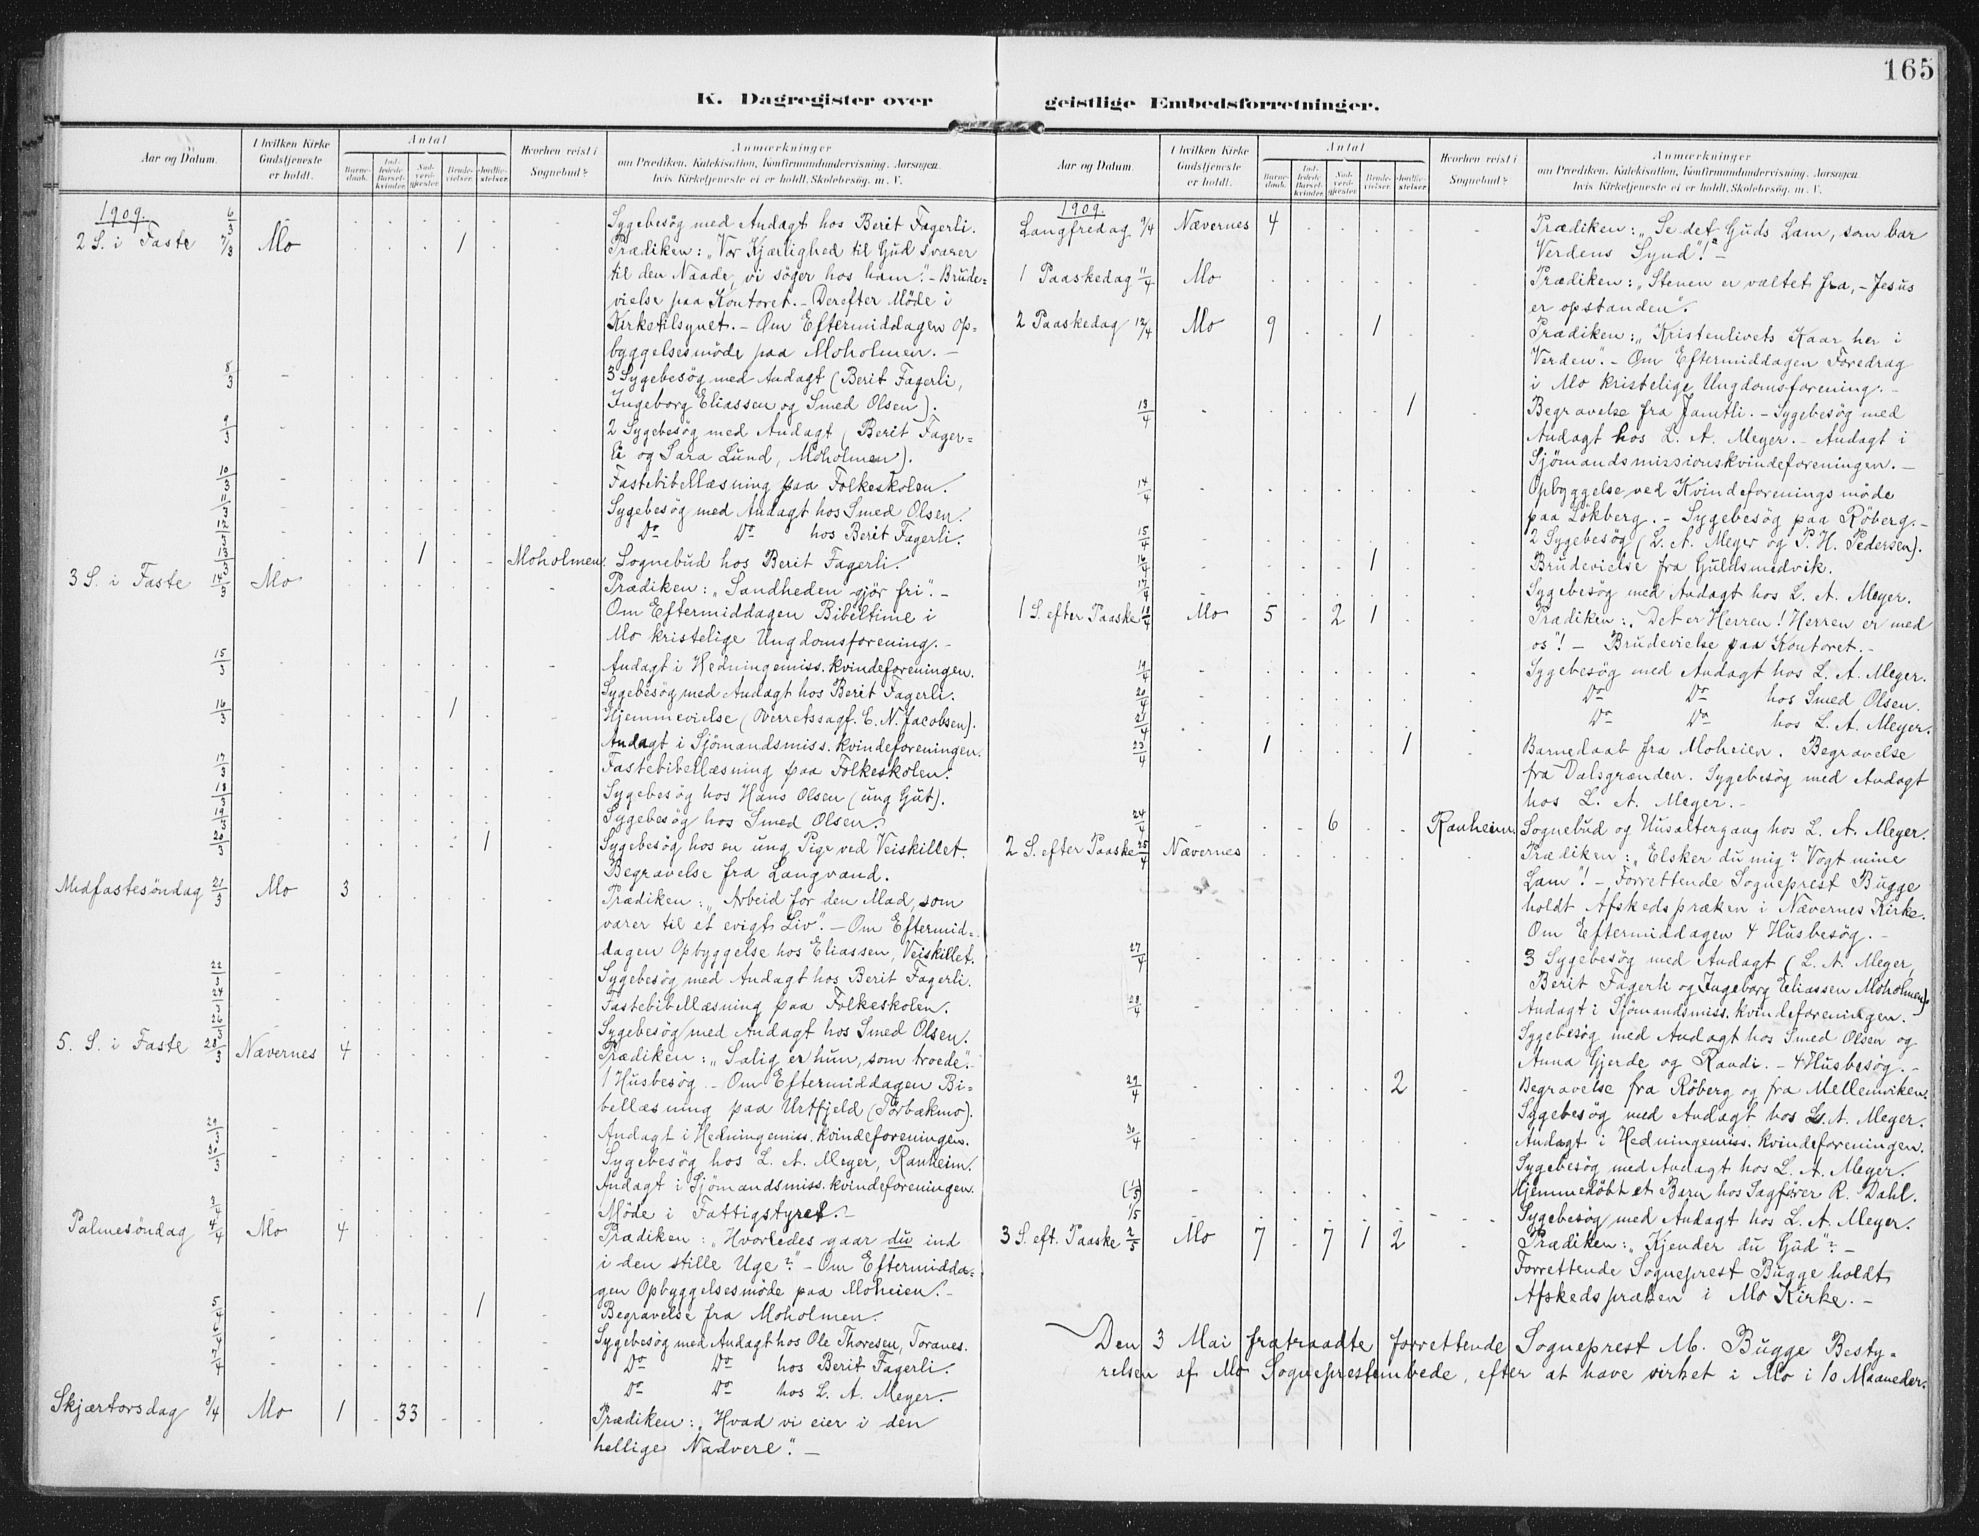 165
K. Dagregister over geistlige Embedsforretninger.
Aar og Datum.
I hvilken Kirke Gudstjeneste er holdt.
Antal
Barnedaab.
Indledede Barselkvinder.
Nadverdgjester
Brudevielser.
Jordfæstelser.
Hvorhen reist i Sognebud?
Anmærkninger
om Prædiken, Katekisation, Konfirmandundervisning, Aarsagen,
hvis Kirketjeneste ei er holdt, Skolebesøg, m. V.
1909.
6/3 - Sygebesøg med Andagt hos Berit Fagerli.
2 S. i Faste 7/3 Mo 1 Prædiken: „Vor Kjærlighed til Gud svarer
til den Naade, vi søger hos ham". - Brude=
vielse paa Kontoret. - Derefter Møde i
Kirketilsynet. - Om Eftermiddagen Op=
byggelsesmøde paa Moholmen. -
8/3 - 3 Sygebesøg med Andagt (Berit Fagerli,
Ingeborg Eliassen og Smed Olsen).
9/3 - 2 Sygebesøg med Andagt (Berit Fager=
li og Sara Lund, Moholmen).
10/3 - Fastebibellæsning paa Folkeskolen.
11/3 - Sygebesøg med Andagt hos Smed Olsen.
12/3 - Do Do hos Berit Fagerli.
13/3 - 1 Moholmen. Sognebud hos Berit Fagerli.
3 S. i Faste 14/3 Mo Prædiken: „Sandheden gjør fri". -
Om Eftermiddagen Bibeltime i
Mo kristelige Ungdomsforening. -
15/3 - Andagt i Hedningemiss. kvindeforeningen.
Sygebesøg med Andagt hos Berit Fagerli.
16/3 - 1 Hjemmevielse (Overretssagf. E. N. Jacobsen).
Andagt i Sjømandsmiss. kvindeforeningen.
17/3 - Fastebibellæsning paa Folkeskolen.
18/3 - Sygebesøg hos Hans Olsen (ung Gut).
19/3 - Sygebesøg hos Smed Olsen.
20/3 - 1 Sygebesøg hos en ung Pige ved Veiskillet.
Begravelse fra Langvand.
Midfastesøndag 21/3 Mo 3 Prædiken: „Arbeid for den Mad, som
varer til et evigt Liv". - Om Eftermid=
dagen Opbyggelse hos Eliassen, Veiskillet.
22/3 - Sygebesøg med Andagt hos Berit Fagerli.
24/3 - Fastebibellæsning paa Folkeskolen.
26/3 - Sygebesøg med Andagt hos Smed Olsen.
5. S. i Faste 28/3 Nævernes 4 Prædiken: „Salig er hun, som troede".
1 Husbesøg. - Om Eftermiddagen Bi=
bellæsning paa Urtfjeld (Torbækmo).
29/3 - Andagt i Hedningemiss. kvindeforeningen.
30/3 - Sygebesøg hos L. A. Meyer, Ranheim.
Andagt i Sjømandsmiss. kvindeforeningen.
3/4 - Møde i Fattigstyret. -
Palmesøndag 4/4 Mo 4 Prædiken: „Hvorledes gaar du ind
i den stille Uge?" - Om Eftermidda=
gen Opbyggelsesmøde paa Moheien. -
5/4 - 1 Begravelse fra Moholmen.
6/4 - Sygebesøg med Andagt hos Ole Thoresen, Toranes.
7/4 - Do Do hos Berit Fagerli.
Do Do hos L. A. Meyer.
Skjærtorsdag 8/4 Mo 1 33 Prædiken: „Hvad vi eier i den
hellige Nadvere". -
Aar og Datum.
I hvilken Kirke Gudstjeneste er holdt.
Antal
Barnedaab.
Indledede Barselkvinder.
Nadverdgjester
Brudevielser.
Jordfæstelser.
Hvorhen reist i Sognebud?
Anmærkninger
om Prædiken, Katekisation, Konfirmandundervisning, Aarsagen,
hvis Kirketjeneste ei er holdt, Skolebesøg, m. V.
1909.
Langfredag 9/4 Nævernes 4 Prædiken: „Se det Guds Lam, som bar
Verdens Synd"! -
1 Paaskedag 11/4 Mo Prædiken: „Stenen er væltet fra, - Jesus
er opstanden".
2 Paaskedag 12/4 Mo 9 1 Prædiken: „Kristenlivets Kaar her i
Verden". - Om Eftermiddagen Foredrag
i Mo kristelige Ungdomsforening. -
13/4 - 1 Begravelse fra Jamtli. - Sygebesøg med
Andagt hos L. A. Meyer. - Andagt i
Sjømandsmissionskvindeforeningen. -
14/4 - Opbyggelse ved Kvindeforenings møde
paa Løkberg. - Sygebesøg paa Røberg. -
15/4 2 Sygebesøg (L. A. Meyer og P. H. Pedersen).
16/4 - 1 Brudevielse fra Guldsmedvik.
17/4 - Sygebesøg med Andagt hos L. A. Meyer.
1 S. efter Paaske 18/4 Mo 5 2 1 Prædiken: „Det er Herren! Herren er med
os"! - Brudevielse paa Kontoret. -
19/4 - Sygebesøg med Andagt hos L. A. Meyer.
20/4 - Do Do hos Smed Olsen.
21/4 - Do Do hos L. A. Meyer.
23/4 - 1 1 Barnedaab fra Moheien. Begravelse
fra Dalsgrænden. Sygebesøg med Andagt
hos L. A. Meyer. -
24/4 - 6 Ranheim. Sognebud og Husaltergang hos L. A. Meyer.
2 S. efter Paaske 25/4 Nævernes Prædiken: „Elsker du mig? Vogt mine
Lam"! - Forrettende Sogneprest Bugge
holdt Afskedspræken i Nævernes Kirke.
Om Eftermiddagen 4 Husbesøg. -
27/4 - 3 Sygebesøg med Andagt (L. A. Meyer,
Berit Fagerli og Ingeborg Eliassen Moholmen)
28/4 - Andagt i Sjømandsmiss. kvindeforeningen.
Sygebesøg med Andagt hos Smed Olsen og
Anna Gjerde og Randi. - 4 Husbesøg. -
29/4 - 2 Begravelse fra Røberg og fra Mellemviken.
Sygebesøg med Andagt hos L. A. Meyer.
30/4 - Andagt i Hedningemiss. kvindeforeningen.
Sygebesøg med Andagt hos L. A. Meyer.
(1/5) - Hjemmedøbt et Barn hos Sagfører R. Dahl.
1/5 - Sygebesøg med Andagt hos L. A. Meyer.
3 S. eft. Paaske 2/5 Mo 7 7 1 2 Prædiken: „Kjender du Gud"? -
Forrettende Sogneprest Bugge holdt
Afskedspræken i Mo Kirke. -
Den 3 Mai fratraadte forrettende Sogneprest M. Bugge Besty=
relsen af Mo Sogneprestembede, efter at have virket i Mo i 10 Maaneder.